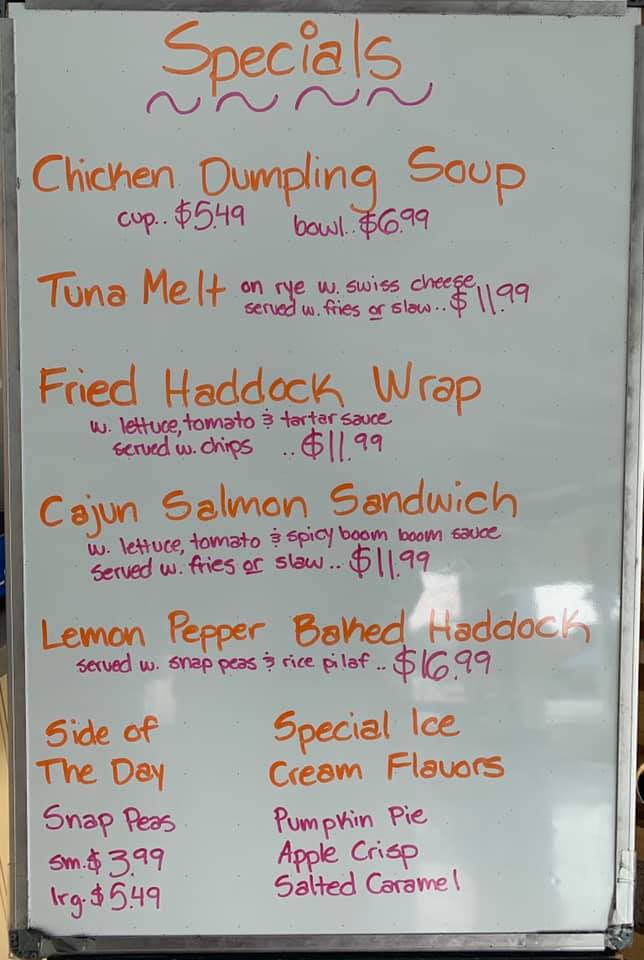 Specials
Chicken Dumpling Soup
cup..$5.49 bowl..$6.99
Tuna Melt on rye w. swiss cheese
served w. fries or slaw..$11.99
Fried Haddock Wrap
w. lettuce, tomato & tartar sauce
served w. chips ..$11.99
Cajun Salmon Sandwich
w. lettuce, tomato & spicy boom boom sauce
served w. fries or slaw..$11.99
Lemon Pepper Baked Haddock
served w. snap peas & rice pilaf..$16.99
Side of
The Day
Snap Peas
sm.$3.99
lrg.$5.49
Special Ice
Cream Flavors
Pumpkin Pie
Apple Crisp
Salted Caramel